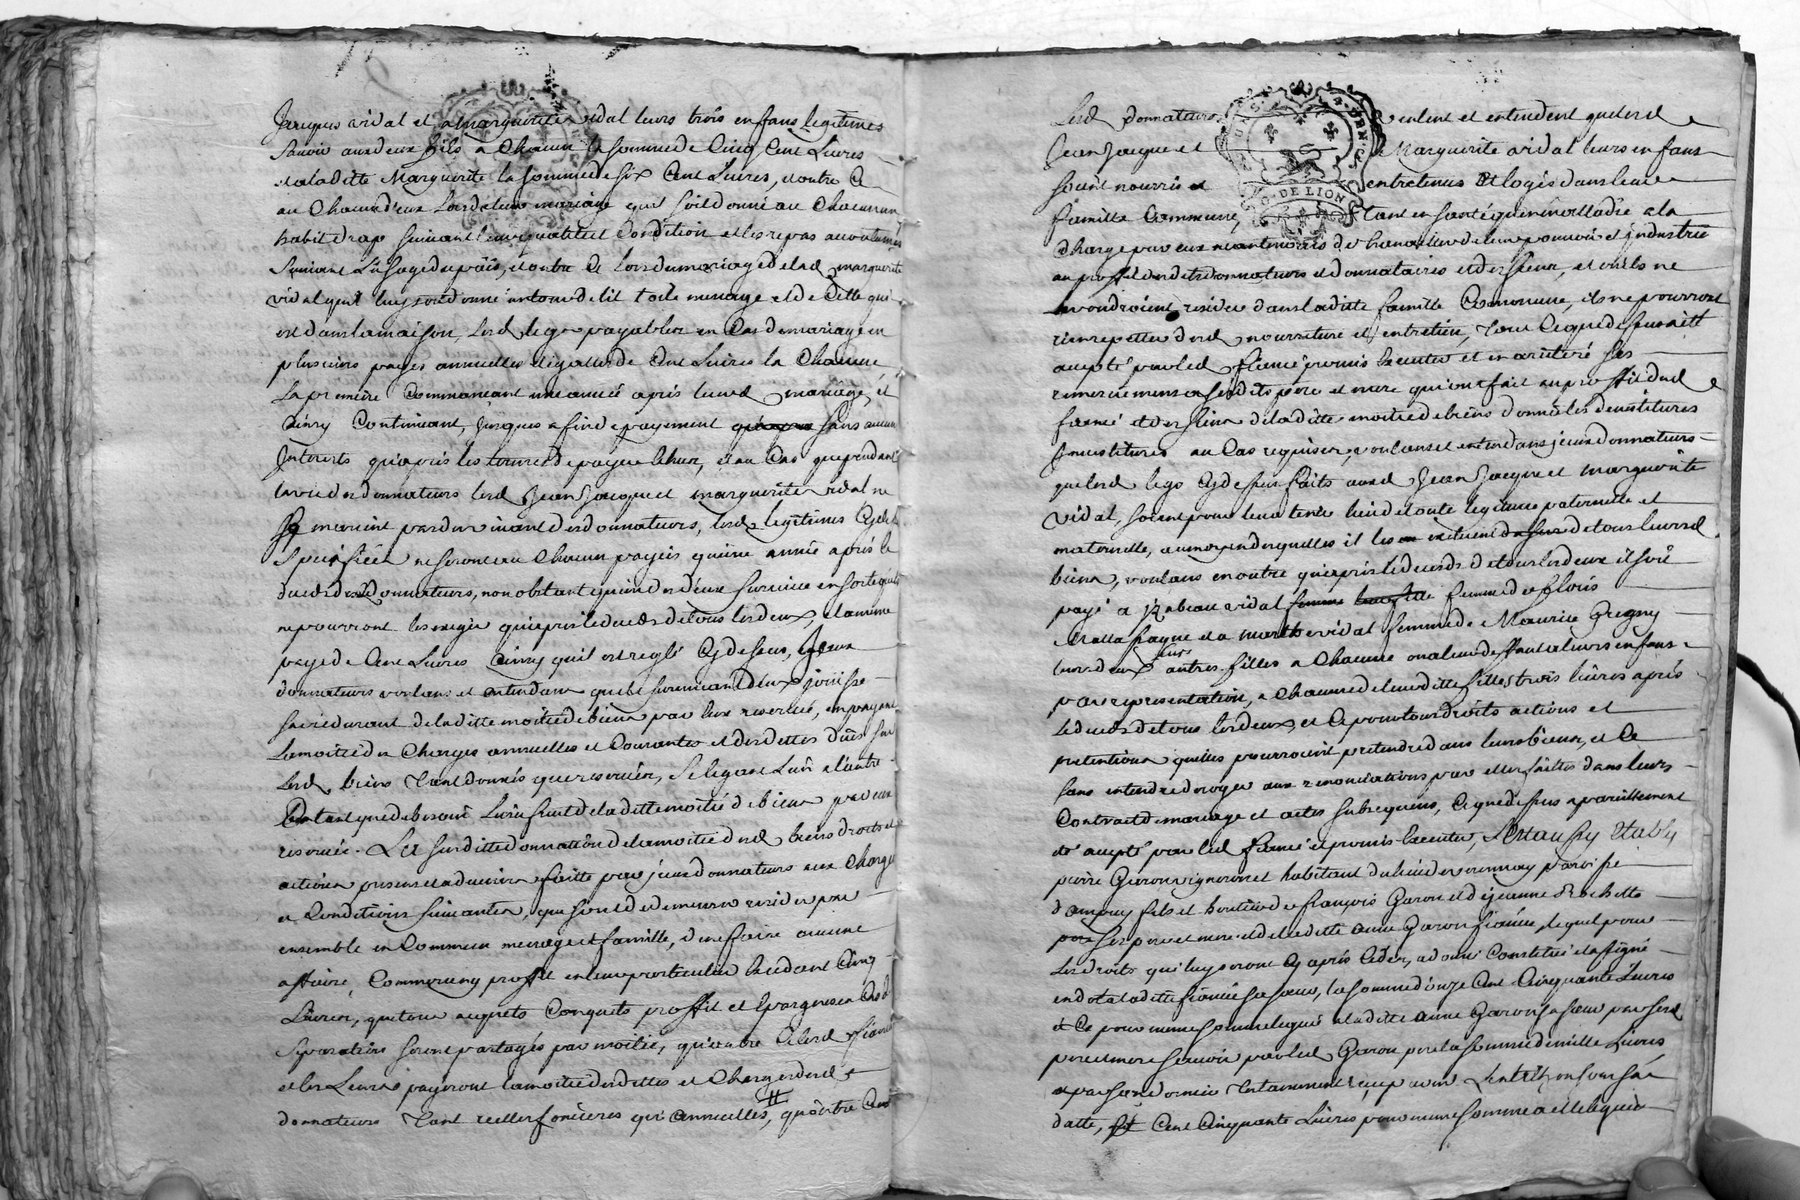 Jacques vidal et a marguerite vidal leurs trois enfans legitimes
Sauoir auxd deux fils a Chacun la somme de Cinq Cent Liures
et a laditte Marguerite la somme de six Cent Liures, et outre Ce
au Chacun d'eux Lors de leur mariage qu'il soit donné au Chacun un
habit drap suiuant leur qualité et Condition et les repas accoutumés
Suiuant L'usage du païs, et outre Ce lors du mariage de lad marguerite
vidal qu'il luy soit donné un tour de lit toile menage et de Celle qui
est dans la maison, Lesd legs payables en Cas de mariage en
plusieurs payes annuelles et egalles de Cent Liures la Chacune
La premiere Commançant une année après leurd mariage, et
Ainsy Continuant, jusques a fin de payement sans aucun
Interets qu'après les termes de payes echus, et au Cas que pendant
la vie des donnateurs lesd Jean Jacques et marguerite vidal ne
se marient par deuant desd donnateurs, lesd legitimes Cy dessus
Specifiées ne seront au Chacun payées qu'une année après le
decès desd Donnateurs, nonobstant qu'un d'eux suruiue en sorte qu'ils
ne pourront les exiger qu'après le decès de tous les deux, et a meme
paye de Cent Liures Ainsy qu'il est reglé Cy dessus, Iceux
donnateurs voulans et entendans que le suruiuant d'eux jouisse
sa vie durant de laditte moitié de biens par Eux reserué, en payant
La moitié des Charges annuelles et Courantes et des dettes dües sur
Lesd biens tant donnés que reserués, Se legant L'un a l'autre
En tant que de besoin L'usufruit de laditte moitié de biens par eux
reserués. La susditte Donnation de la moitié desd biens droits et
actions presens et aduenir faitte par jceux donnateurs aux Charges
et Conditions suiuantes, que sont de demeurer resider par
ensemble en Commun menage et famille, de ne faire aucune
affaire, Commerce ny proffit en leur particulier Excedant Cinq
Liures, que tous acquets Conquets proffit et Epargnes en Cas de
Separation seront partagés par moitié, qu'outre Ce lesd fiancés
et les Leurs payeront la moitié des dettes et Charges desd
donnateurs tant reelles foncieres qu'annuelles, qu'outre Ce
Lesd donnateurs veulent et entendent que lesd
Jean Jacque et Marguerite vidal leurs enfans
soient nourris et entretenus et logés dans leur
famille Commune, tant en santé qu'en malladie a la
charge par eux neantmoins de trauailler de leur pouuoir et jndustrie
au proffit desdits donnateurs et donnataires et des Leurs, et ou ils ne
voudroient resider dans laditte famille Commune, ils ne pourront
rien repetter desd nourriture et entretien, Tout Ce que dessus a été
accepté par led fiancé promis Executer et en a reiteré ses
remerciemens a sesdits pere et mere qui ont fait au proffit dud
fiancé et des siens de laditte moitié de biens donnée les deuestitures
Inuestitures au Cas requises, voulans et entendans jceux donnateurs
que lesd legs Cy dessus faits auxd Jean Jacque et marguerite
vidal, soient pour leur tenir lieu de toute legitime paternelle et
maternelle, au moyen desquelles il les excluent de tous leursd
biens, voulans en outre qu'après le decès d'eux lesd deux il soit
payé a jzabeau vidal femme de Louis
Mallassagne et a marthe vidal femme de Maurice Gregny
leurs deux autres filles a Chacune ou a leur deffaut a leurs enfans
par representation, a Chacune de leurs dittes filles trois liures après
le decès de tous les deux, et Ce pour tous droits actions et
pretentions quelles pourroient pretendre dans leurs biens, et Ce
sans entendre deroger aux renonciations par elles faittes dans leurs
Contracts de mariage et actes subsequens, Ce que dessus a pareillement
eté accepté par led fiancé et promis Executer, Et aussy Etably
pierre Garon vigneron et habitant du lieu de paroisse
d'ampuy fils et heritier de françois Garon et de jeanne Rochette
ses pere et mere et de laditte anne Garon fiancée, lequel pour
Les droits qui luy seront Cy après Cedés, a donné Constitué et assigné
en dot a laditte fiancée sa soeur, la somme d'onze Cent Cinquante Liures
et Ce pour meme somme leguée a laditte anne Garon sa soeur par sesd
pere et mere sçauoir par led Garon pere la somme de mille Liures
par son dernier Testamment reçu par Mr Lentillon sous sa
datte, et Cent Cinquante Liures pour meme somme a elle leguée